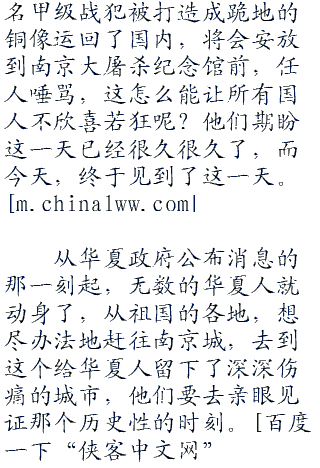 名甲级战犯被打造成跪地的
铜像运回了国内，将会安放
到南京大屠杀纪念馆前，任
人唾骂，这怎么能让所有国
人不欣喜若狂呢？他们期盼
这一天已经很久很久了，而
今天，终于见到了这一天。
[m.chinalww.com]
从华夏政府公布消息的
那一刻起，无数的华夏人就
动身了，从祖国的各地，想
尽办法地赶往南京城，去到
这个给华夏人留下了深深伤
痛的城市，他们要去亲眼见
证那个历史性的时刻。[百度
一下“侠客中文网”